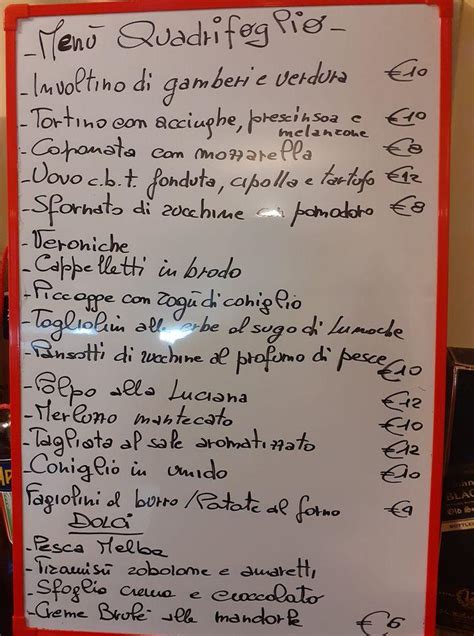 -Menù Quadrifoglio-
-Involtino di gamberi e verdura €10
-Tortino con acciughe, prescinsoa e melanzane €10
-Caponata con mozzarella €8
-Uovo c.b.t. fonduta, cipolla e tartufo €12
-Sfornato di zucchine ai pomodoro €8
-Veroniche
-Cappelletti in brodo
-Piccagge con ragù di coniglio
-Tagliolini alle erbe al sugo di lumache
-Pansotti di zucchine al profumo di pesce €10
-Polpo alla Luciana €12
-Merluzzo mantecato €10
-Tagliata al sale aromatizzato €12
-Coniglio in umido €10
Fagiolini al burro/Patate al forno €4
DOLCI
-Pesca Melba
-Tiramisù zabaione e amaretti
-Sfoglia crema e cioccolato
-Creme Brulé alle mandorle €6